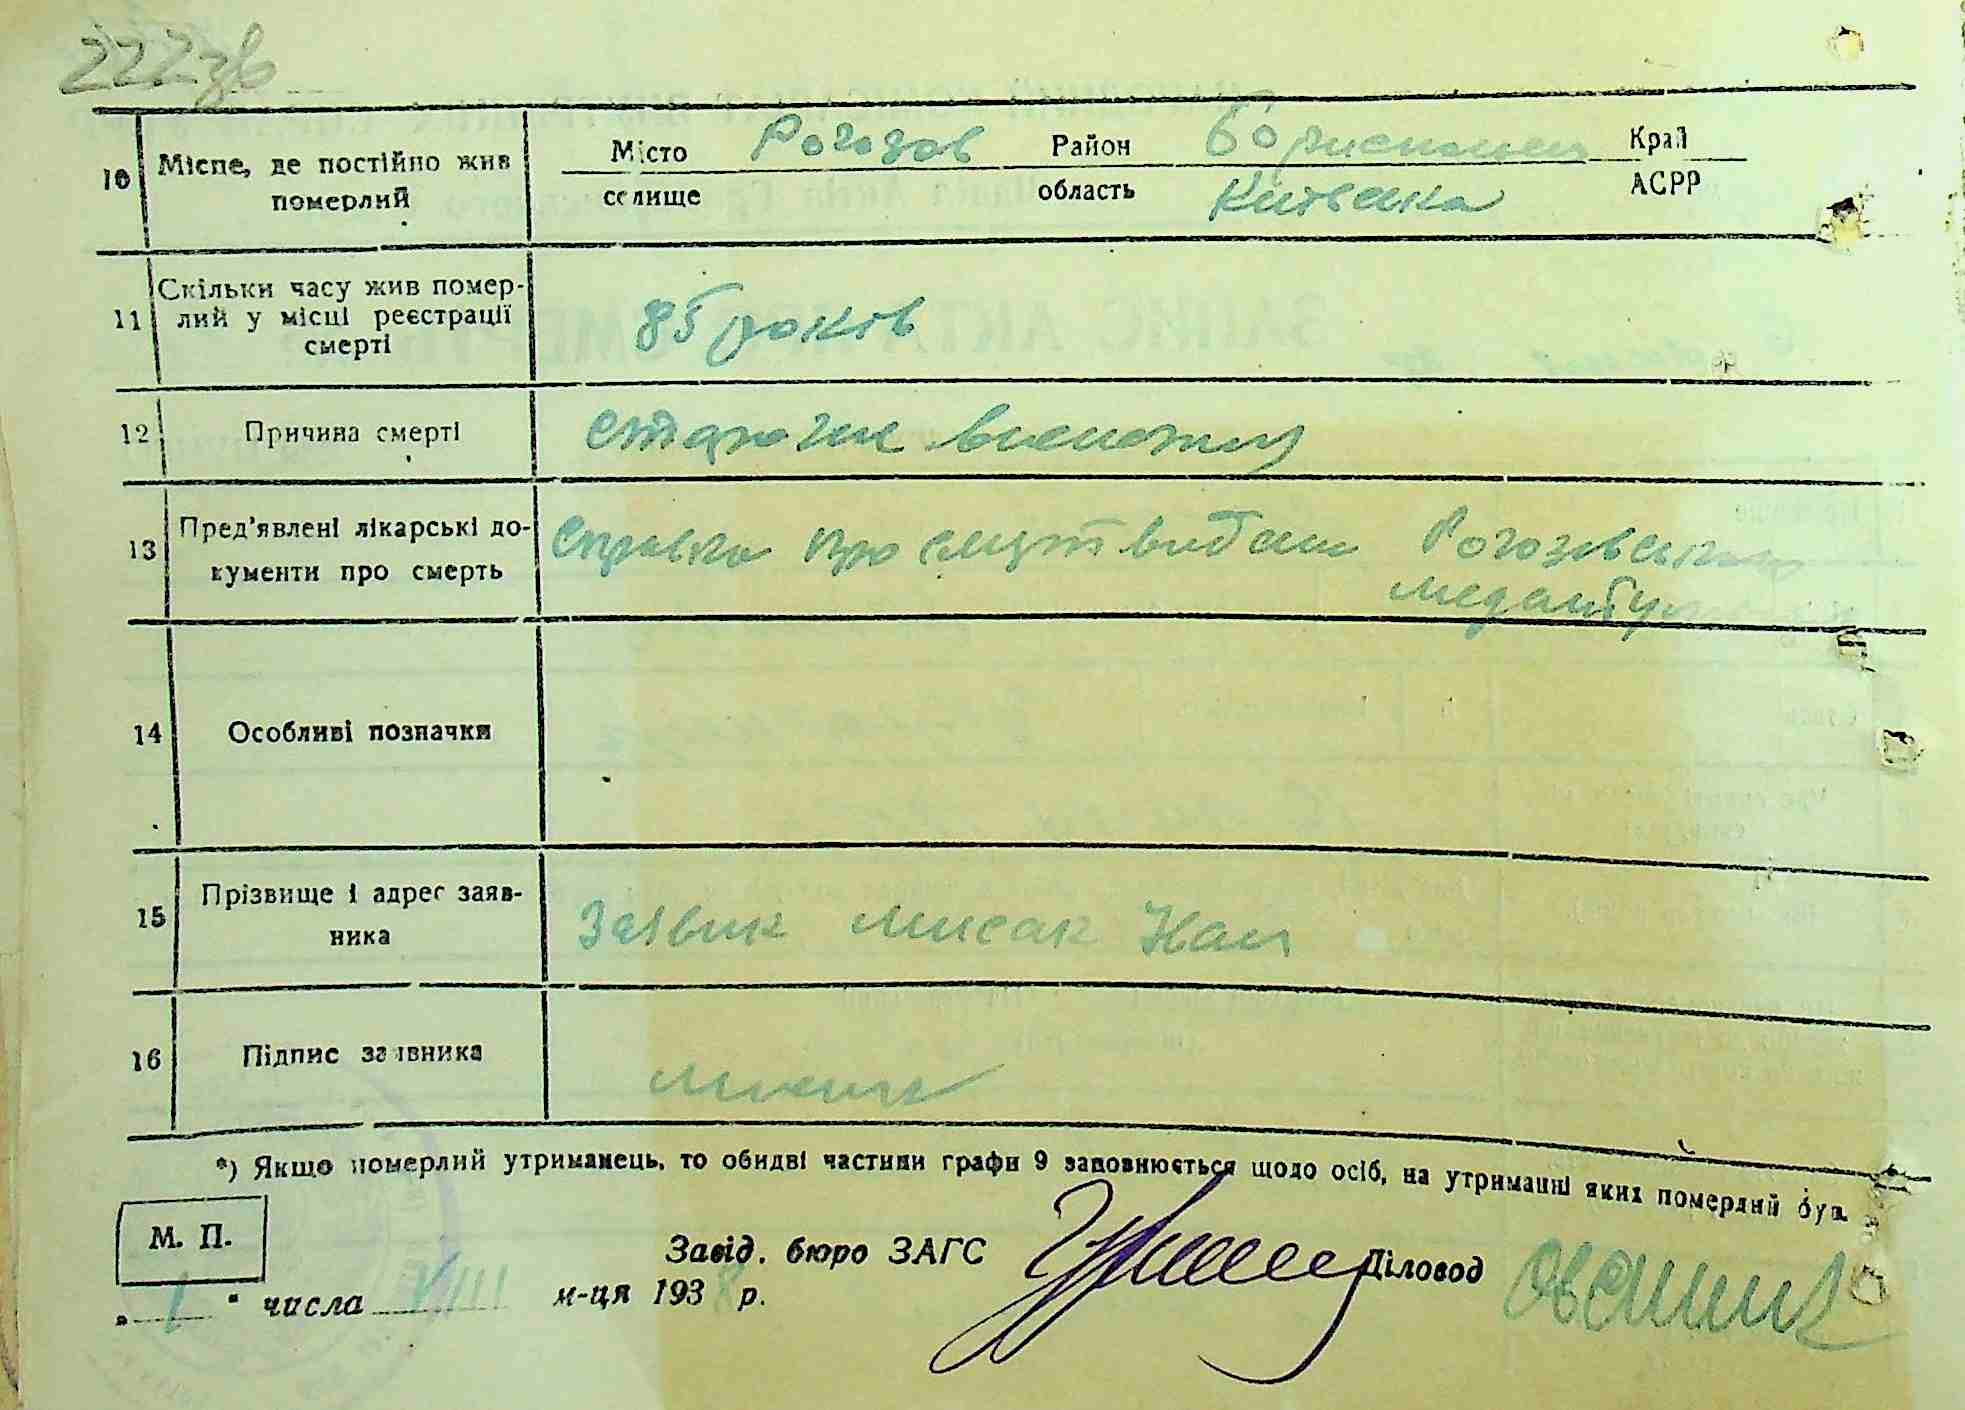 222зв
10 Місце, де постійно жив померлий
Місто Рогозов Район Бориспольск Край
селище область Київська АСРР
11 Скільки часу жив помер-
лий у місці реєстрації
смерті
85 років
12 Причина смерті
13 Пред'явлені лікарські до-
кументи про смерть
Справка про смерть видана Рогозовською
14 Особливі позначки
15 Прізвище і адрес заяв-
ника
Заявник Мисак
16 Підпис заявника
*) Якщо померлий утриманець, то обидві частини графи 9 заповнюється щодо осіб, на утриманні яких померлий був.
М. П.
Завід. бюро ЗАГС Діловод
„ 1 " числа VIII м-ця 1938 р.